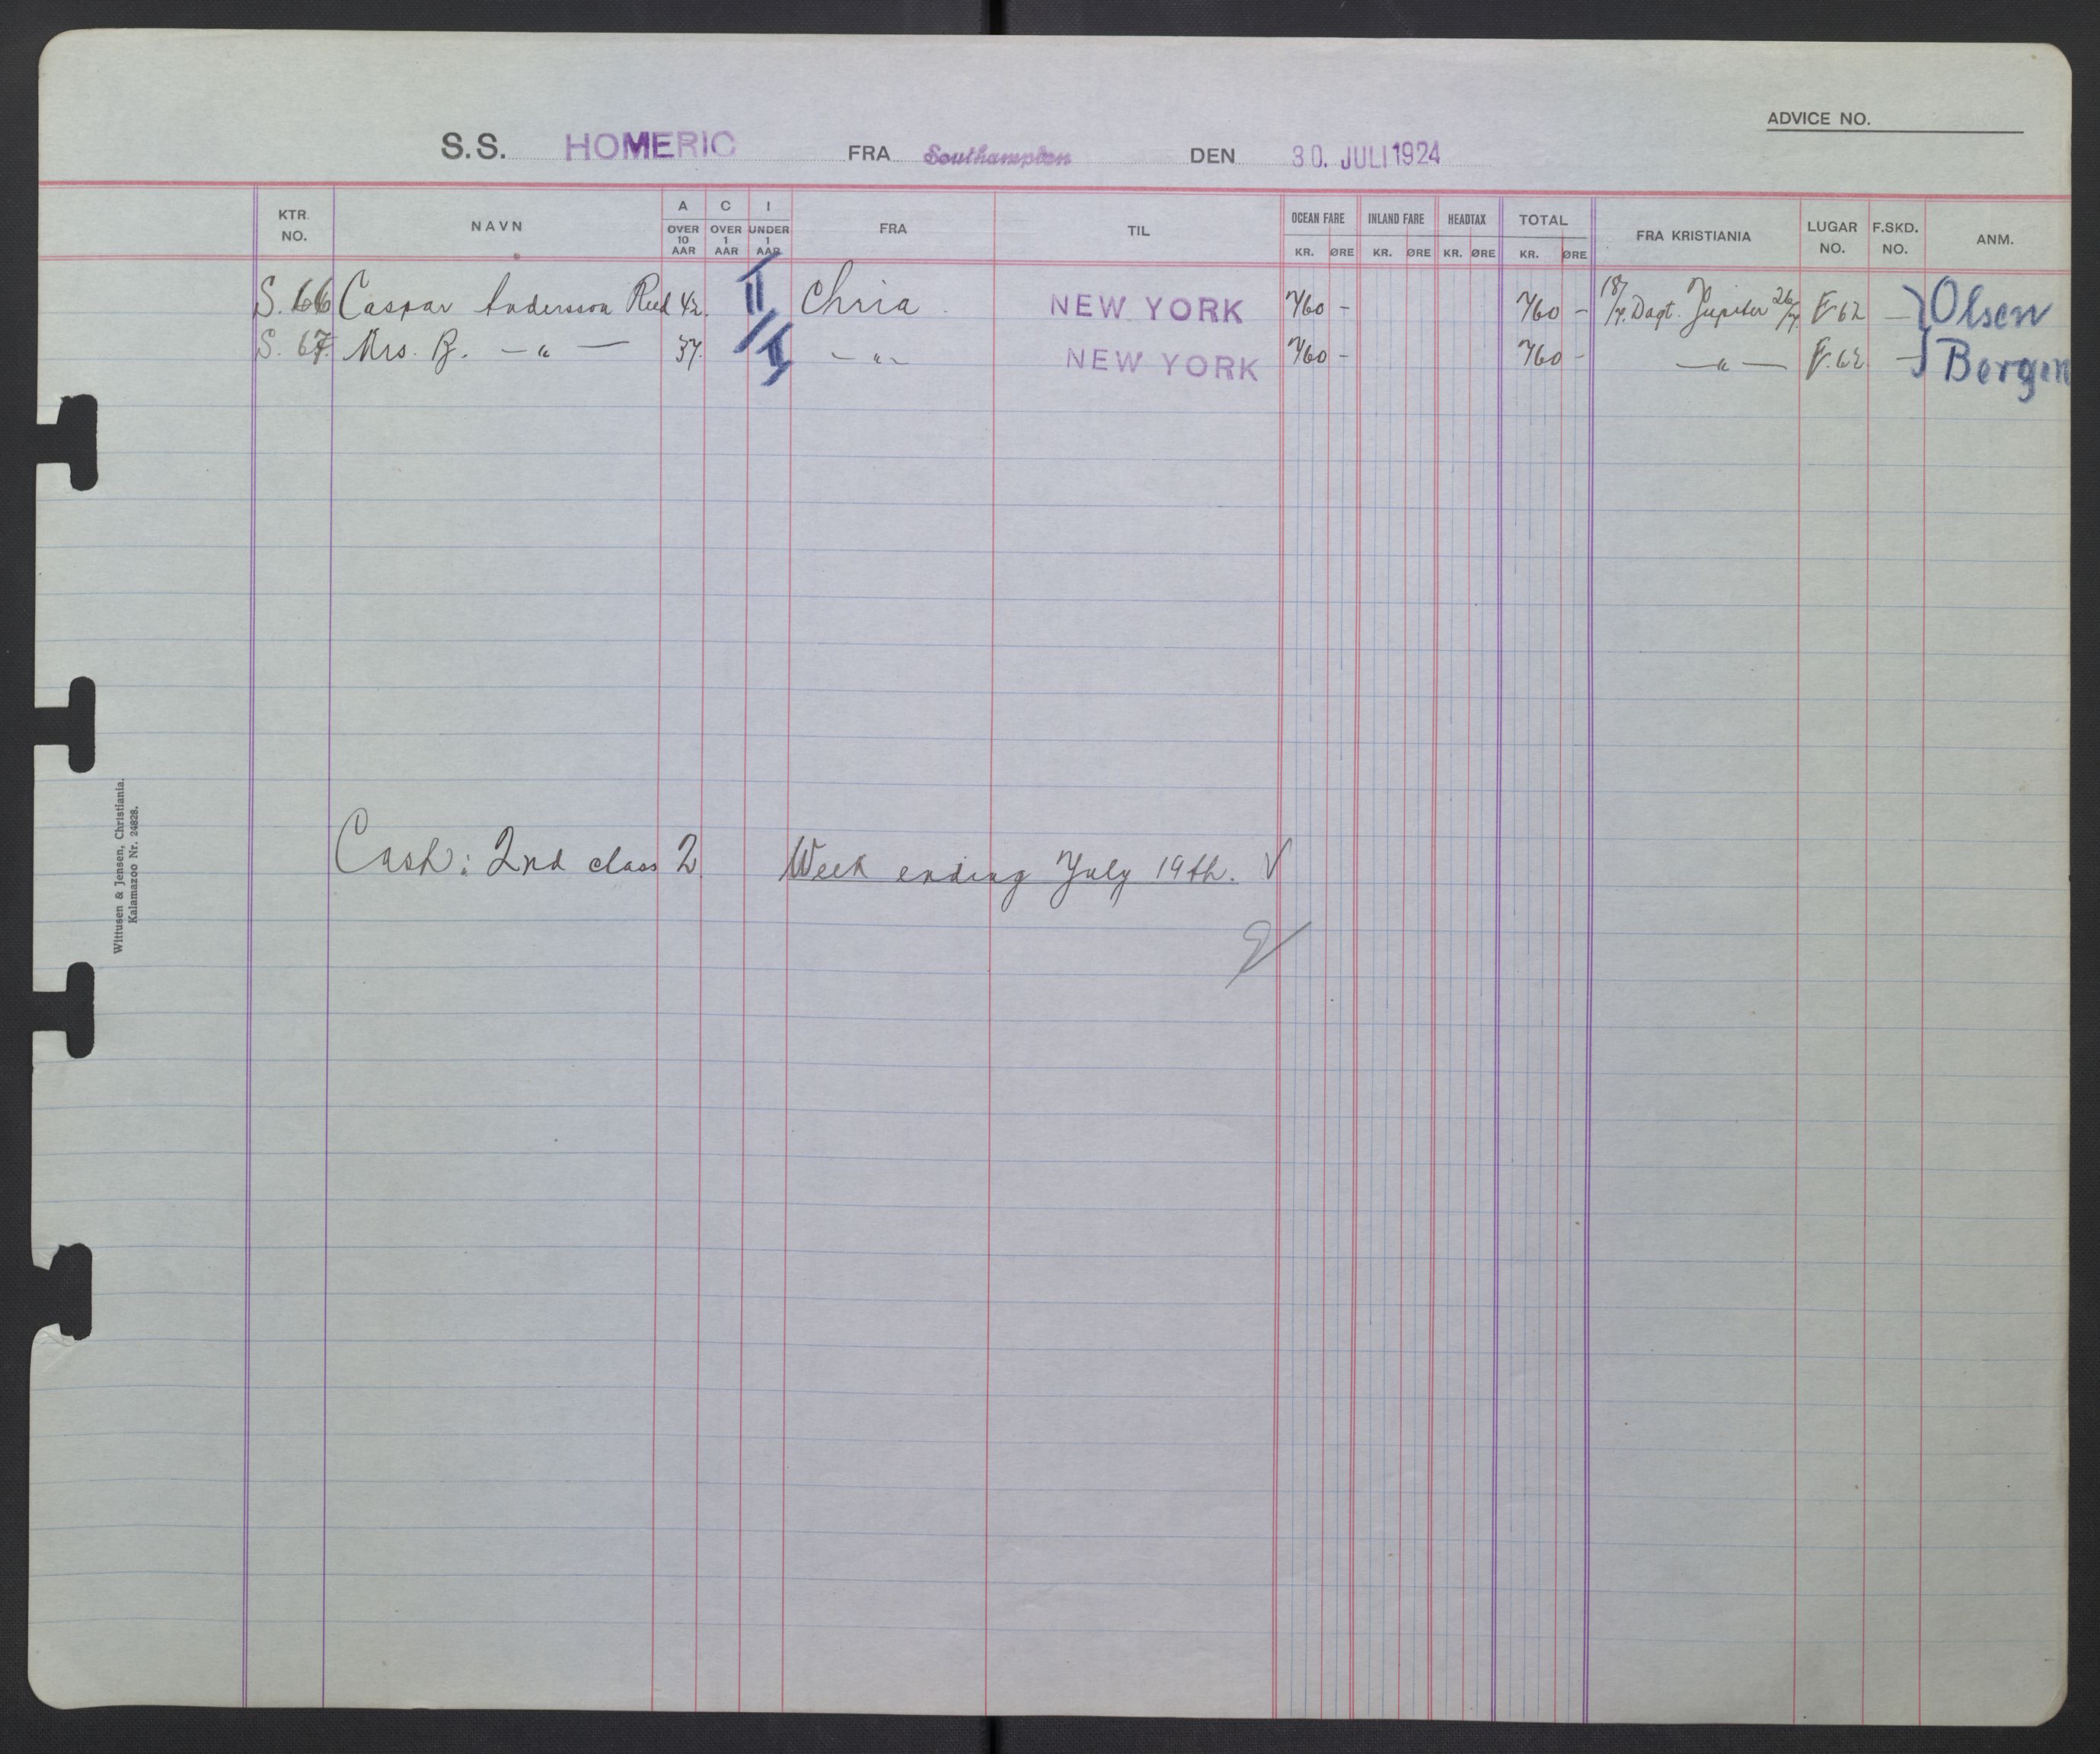 ADVICE NO.
S.S. HOMERIC FRA Southampton DEN 30. JULI 1924
KTR. NO. NAVN A OVER 10 AAR C OVER 1 AAR I UNDER 1 AAR FRA TIL OCEAN FARE KR. ØRE INLAND FARE KR. ØRE HEADTAX KR. ØRE TOTAL KR. ØRE FRA KRISTIANIA LUGAR NO. F.SKD. NO. ANM.
S. 66 Caspar Andersson Reed 42. II Chria NEW YORK 760 - 760 - 18/7. Dagt. Jupiter 26/7. F 62 — Olsen
S. 67 Mrs. B. — " — 37. II — " — NEW YORK 760 - 760 - — " — F. 62 — Bergen
Cash: 2nd class 2. Week ending July 19th. V
Wittusen & Jensen, Christiania.
Kalamazoo Nr. 24828.